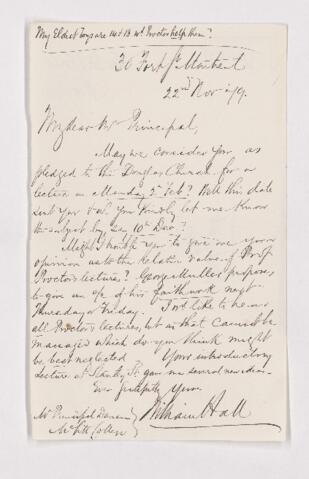 My Eldest boys are 14 & 13 wd. Proctor help them?
30 Fort St. Montreal
22nd Nov. /79.
My dear Mr Principal,
May we consider you as
pledged to the Douglas Church for a
lecture on Monday 2d Feb? Will this date
suit you & wd. you kindly let me know
the subject by say 10th Dec?
Might I trouble you to give me your
opinion as to the relative value of Prof
Proctor's lectures? George Muller proposes
to give us of his faith work next
Thursday or Friday. I'd like to hear
all Proctor's lectures, but as that cannot be
managed which do you think might
be best neglected Your introductory
Lecture at Stanley St. gave me several new ideas.
Ever faithfully yours
William Hall
Mr Principal Dawson
McGill College